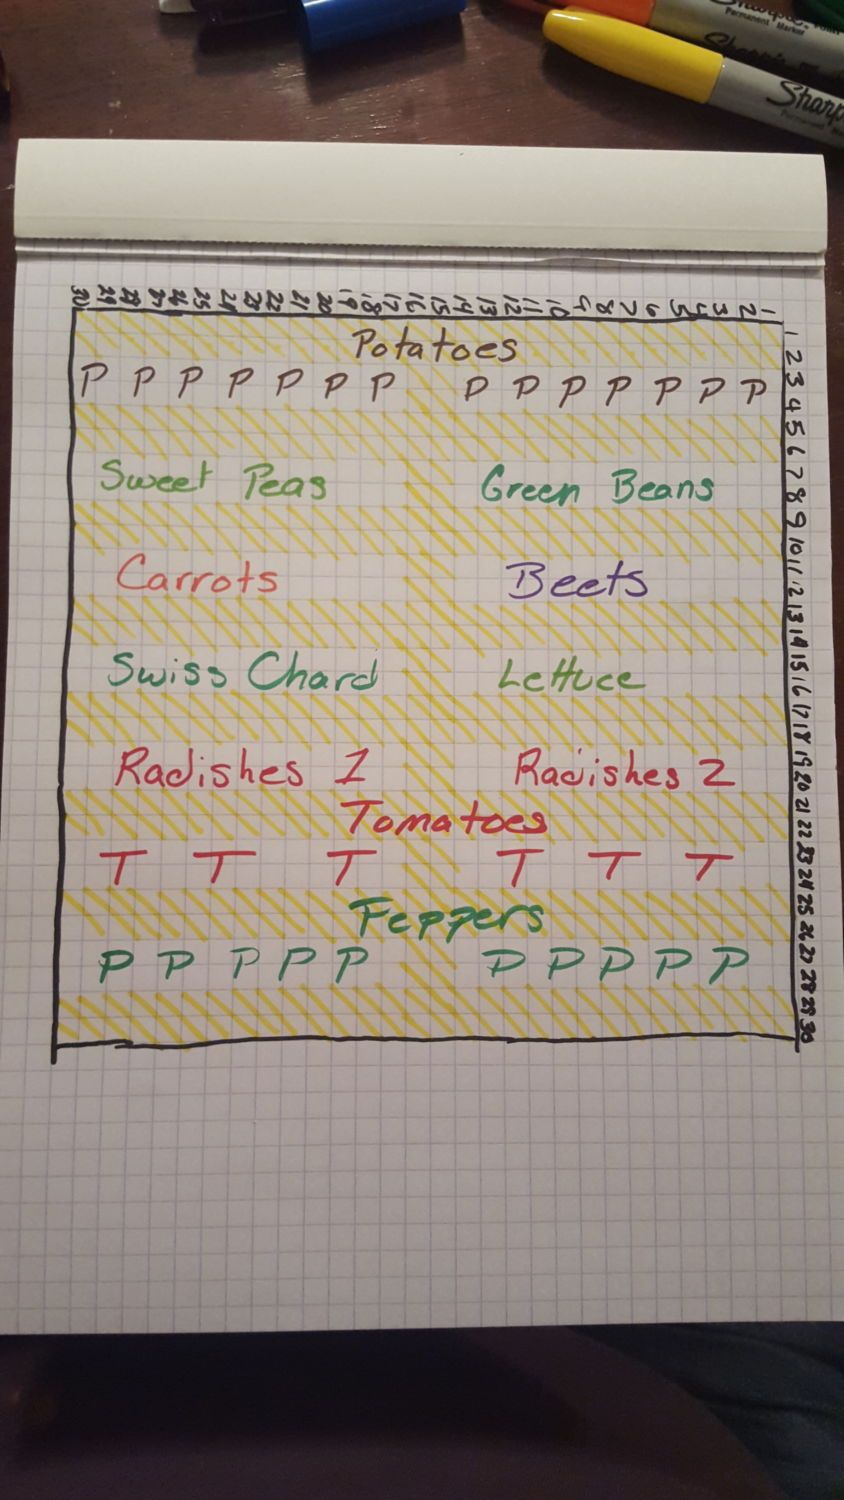 Sharpie
Permanent Marker
Sharpie
Sharp
30 29 28 27 26 25 24 23 22 21 20 19 18 17 16 15 14 13 12 11 10 9 8 7 6 5 4 3 2 1
1 2 3 4 5 6 7 8 9 10 11 12 13 14 15 16 17 18 19 20 21 22 23 24 25 26 27 28 29 30
Potatoes
P P P P P P P P P P P P P P
Sweet Peas Green Beans
Carrots Beets
Swiss Chard Lettuce
Radishes 1 Radishes 2
Tomatoes
T T T T T T
Peppers
P P P P P P P P P P